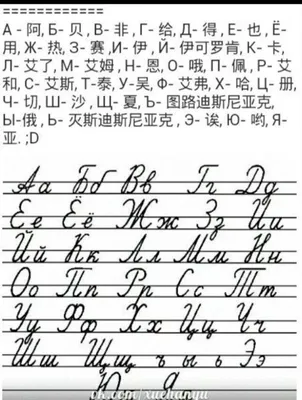 ============
А - 阿, Б- 贝 , В- 非 , Г- 给, Д- 得 , Е- 也 , Ё-
用, Ж- 热, З- 赛 ,И- 伊 , Й- 伊可罗肯, К- 卡,
Л- 艾了, М- 艾姆 , Н- 恩, О- 哦, П- 佩 , Р- 艾
和, С- 艾斯, Т-泰, У-吴, Ф- 艾弗, Х- 哈, Ц- 册,
Ч- 切, Ш- 沙 , Щ- 夏, Ъ- 图路迪斯尼亚克,
Ы-俄 , Ь- 灭斯迪斯尼亚克 , Э- 诶, Ю- 哟, Я-
亚. ;D
Аа Бб Вв Гг Дд
Ее Ёё Жж Зз Ии
Йй Кк Лл Мм Нн
Оо Пп Рр Сс Тт
Уу Фф Хх Цц Чч
Шш Щщ ъ ы ь Ээ
Ю Я
vk.com/xuehanyu